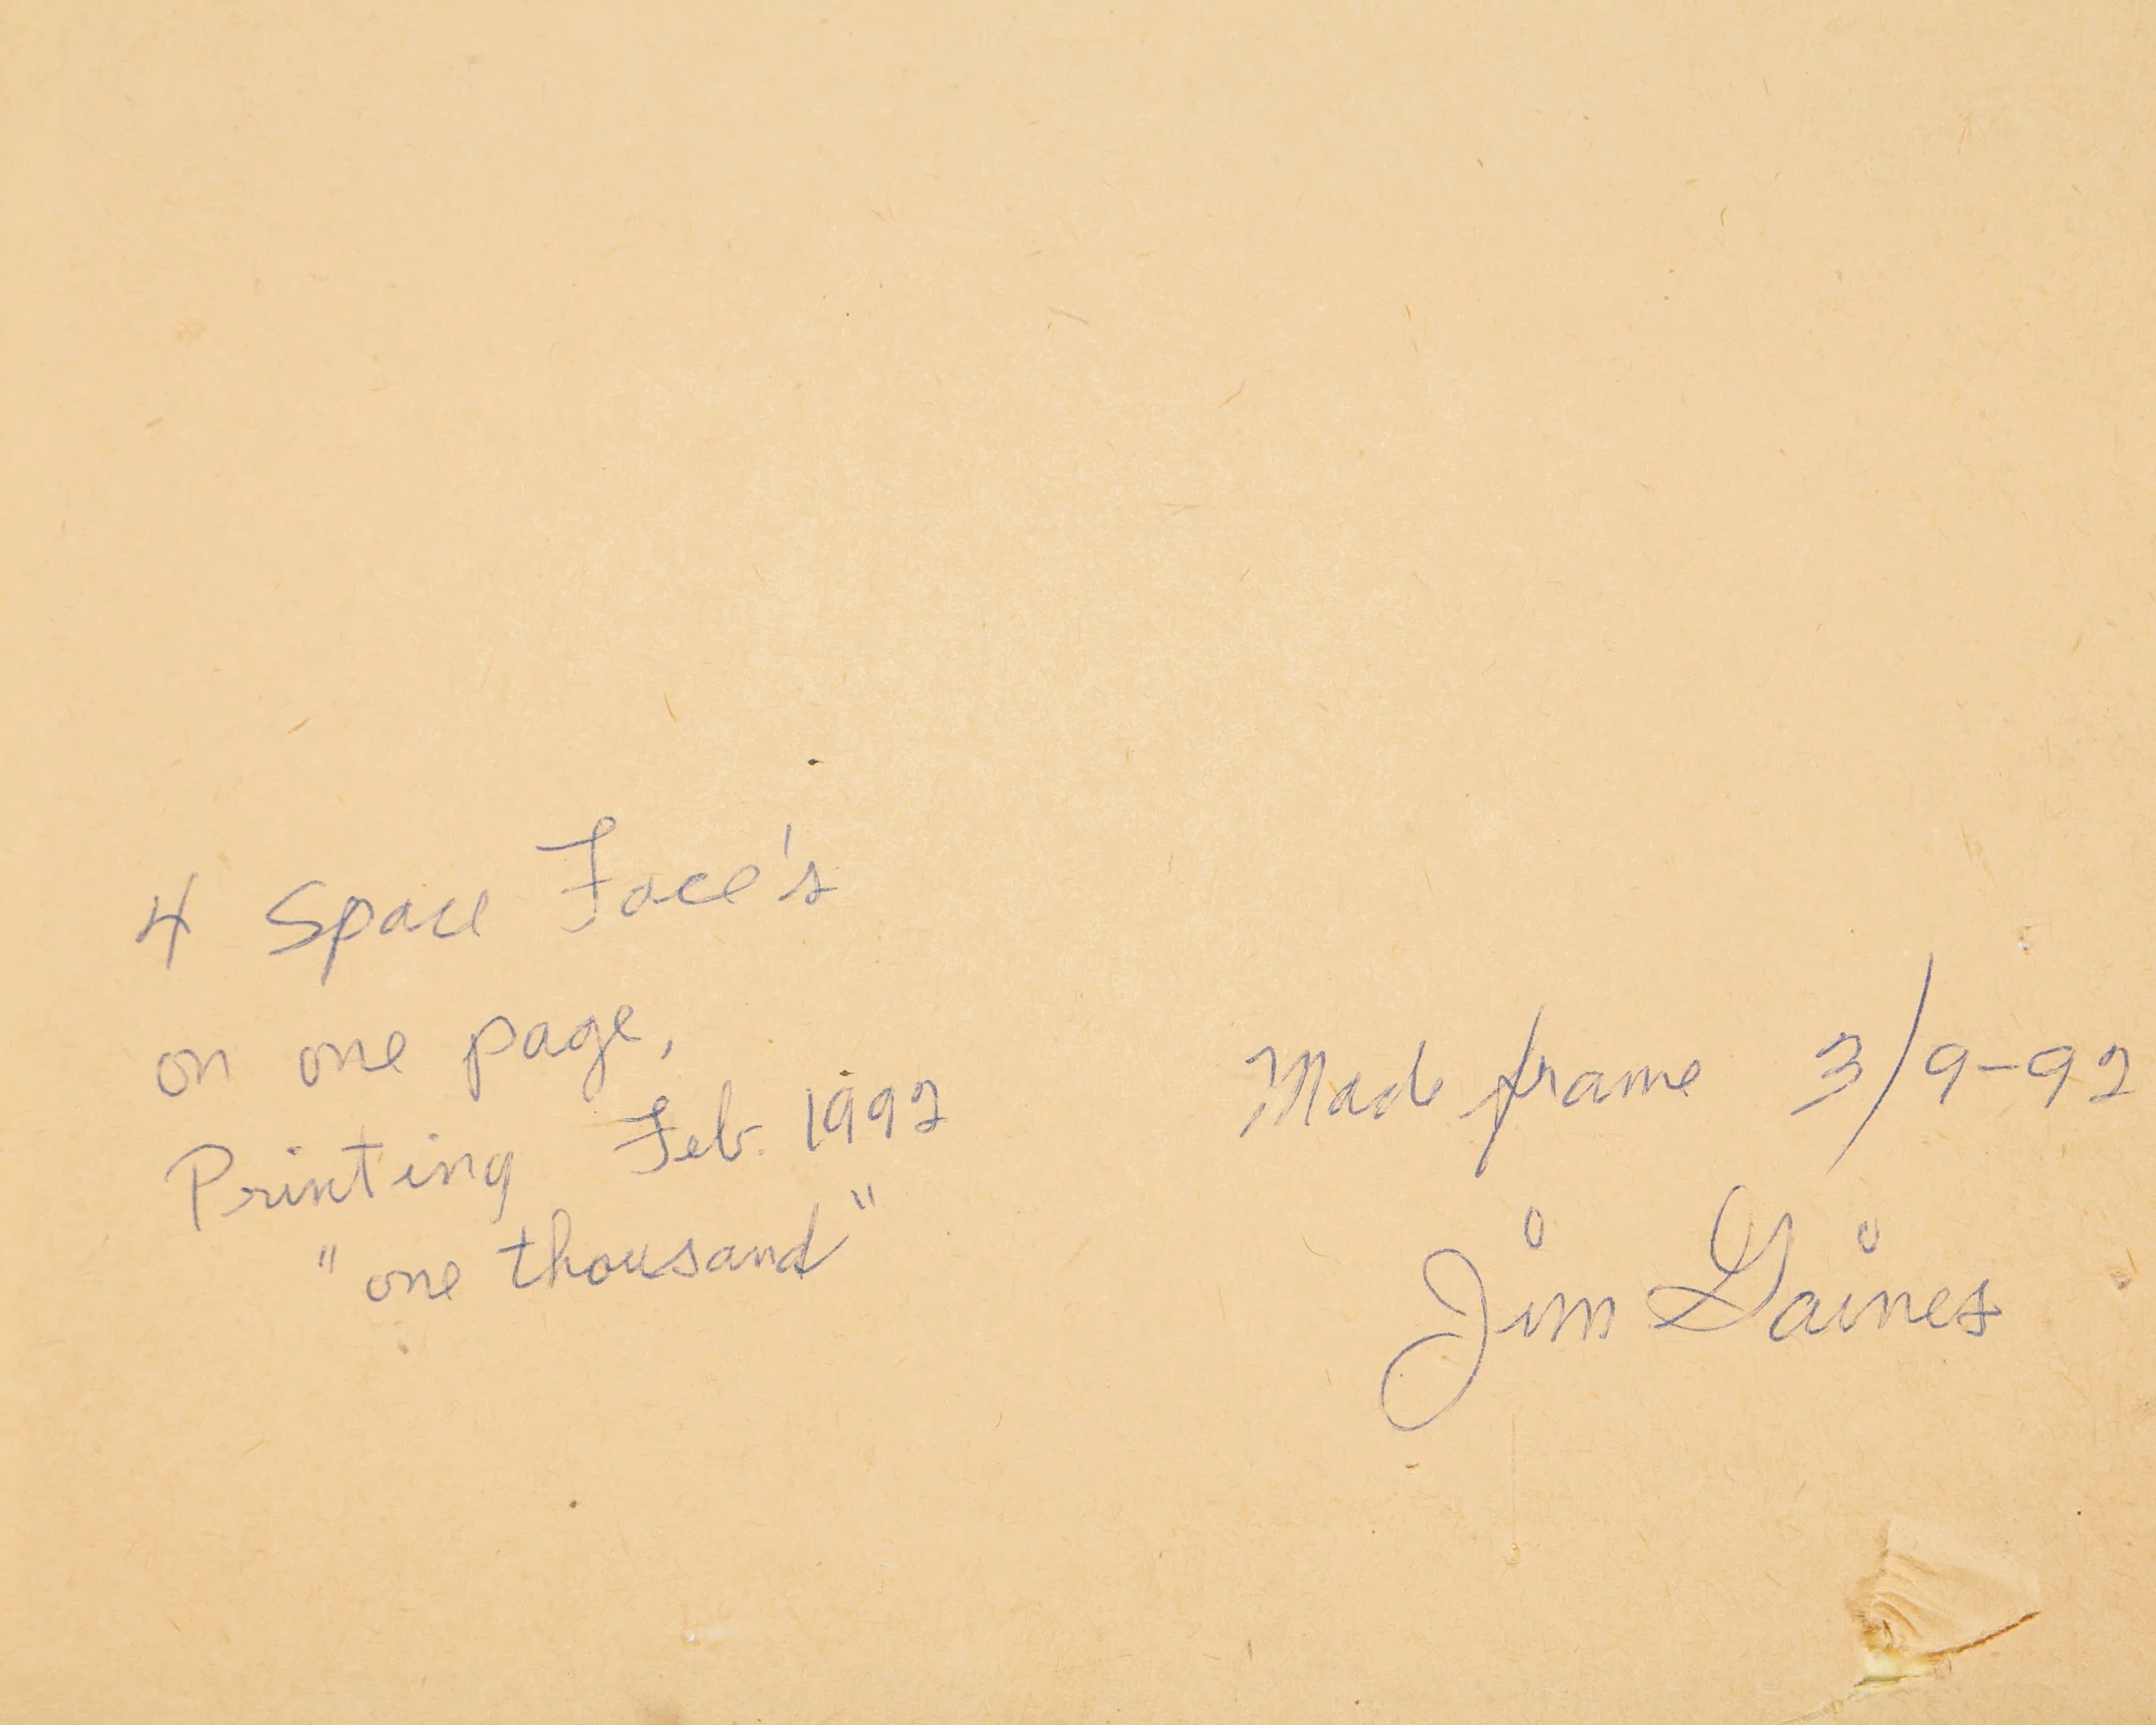 4 Space Face's
on one page,
Printing Feb. 1992
"one thousand"
Made frame 3/9-92
Jim Gaines